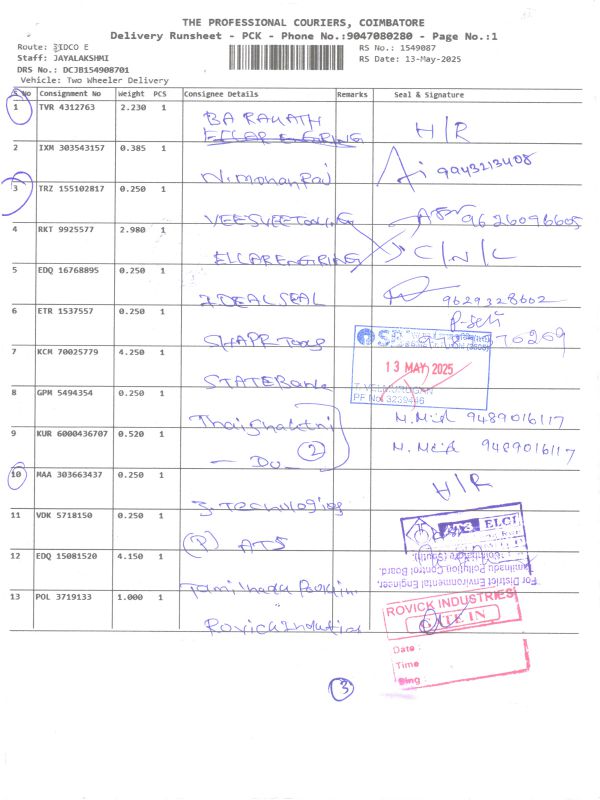 THE PROFESSIONAL COURIERS, COIMBATORE
Delivery Runsheet - PCK - Phone No.:9047080280 - Page No.:1
Route: SIDCO E
RS No.: 1549087
Staff: JAYALAKSHMI
RS Date: 13-May-2025
DRS No.: DCJB154908701
Vehicle: Two Wheeler Delivery
S No Consignment No Weight PCS Consignee Details Remarks Seal & Signature
1 TVR 4312763 2.230 1 BARAMATH H/R
2 IXM 303543157 0.385 1 N.mohanRaj 9943213408
3 TRZ 155102817 0.250 1 VEESVEE Tooling 9626096605
4 RKT 9925577 2.980 1 ELLAR ENGIRING C/N/L
5 EDQ 16768895 0.250 1 IDEAL SEAL 9629328602
6 ETR 1537557 0.250 1 SHAPR Tools
7 KCM 70025779 4.250 1 STATE Bank
13 MAY 2025
T. VELMURUGAN
PF No. 3239446
8 GPM 5494354 0.250 1 9489016117
9 KUR 6000436707 0.520 1 - Do - 2 9489016117
10 MAA 303663437 0.250 1 H/R
11 VDK 5718150 0.250 1 ATS
12 EDQ 15081520 4.150 1 Tamilnadu
For District Environmental Engineer,
Tamilnadu Pollution Control Board,
Coimbatore (South).
13 POL 3719133 1.000 1 Rovick Industries
ROVICK INDUSTRIES
GATE IN
Date :
Time
Sing :
3